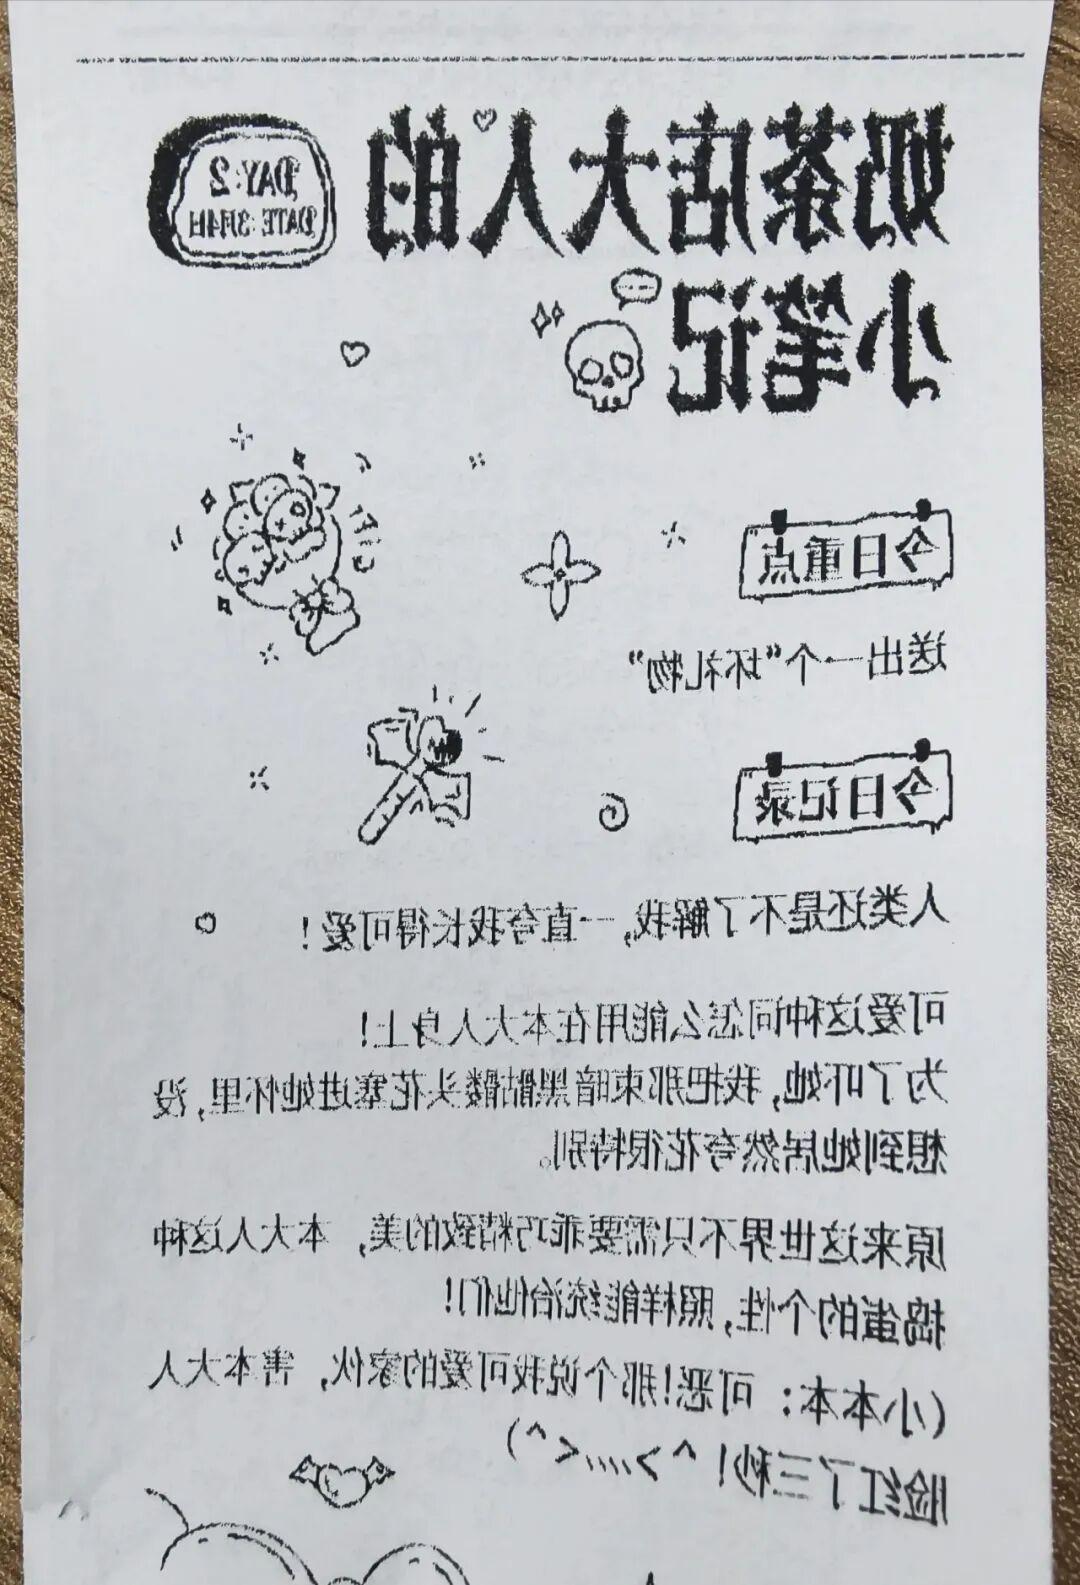 奶茶店大人的
DAY: 2
DATE: 3月4日
小笔记
今日重点
送出一个“坏礼物”
今日记录
人类还是不了解我，一直夸我长得可爱！
可爱这种词怎么能用在本大人身上！
为了吓她，我把那束暗黑骷髅头花塞进她怀里，没
想到她居然夸花很特别。
原来这世界不只需要乖巧精致的美，本大人这种
捣蛋的个性，照样能统治他们！
（小本本：可恶！那个说我可爱的家伙，害本大人
脸红了三秒！^ >,,,,< ^）